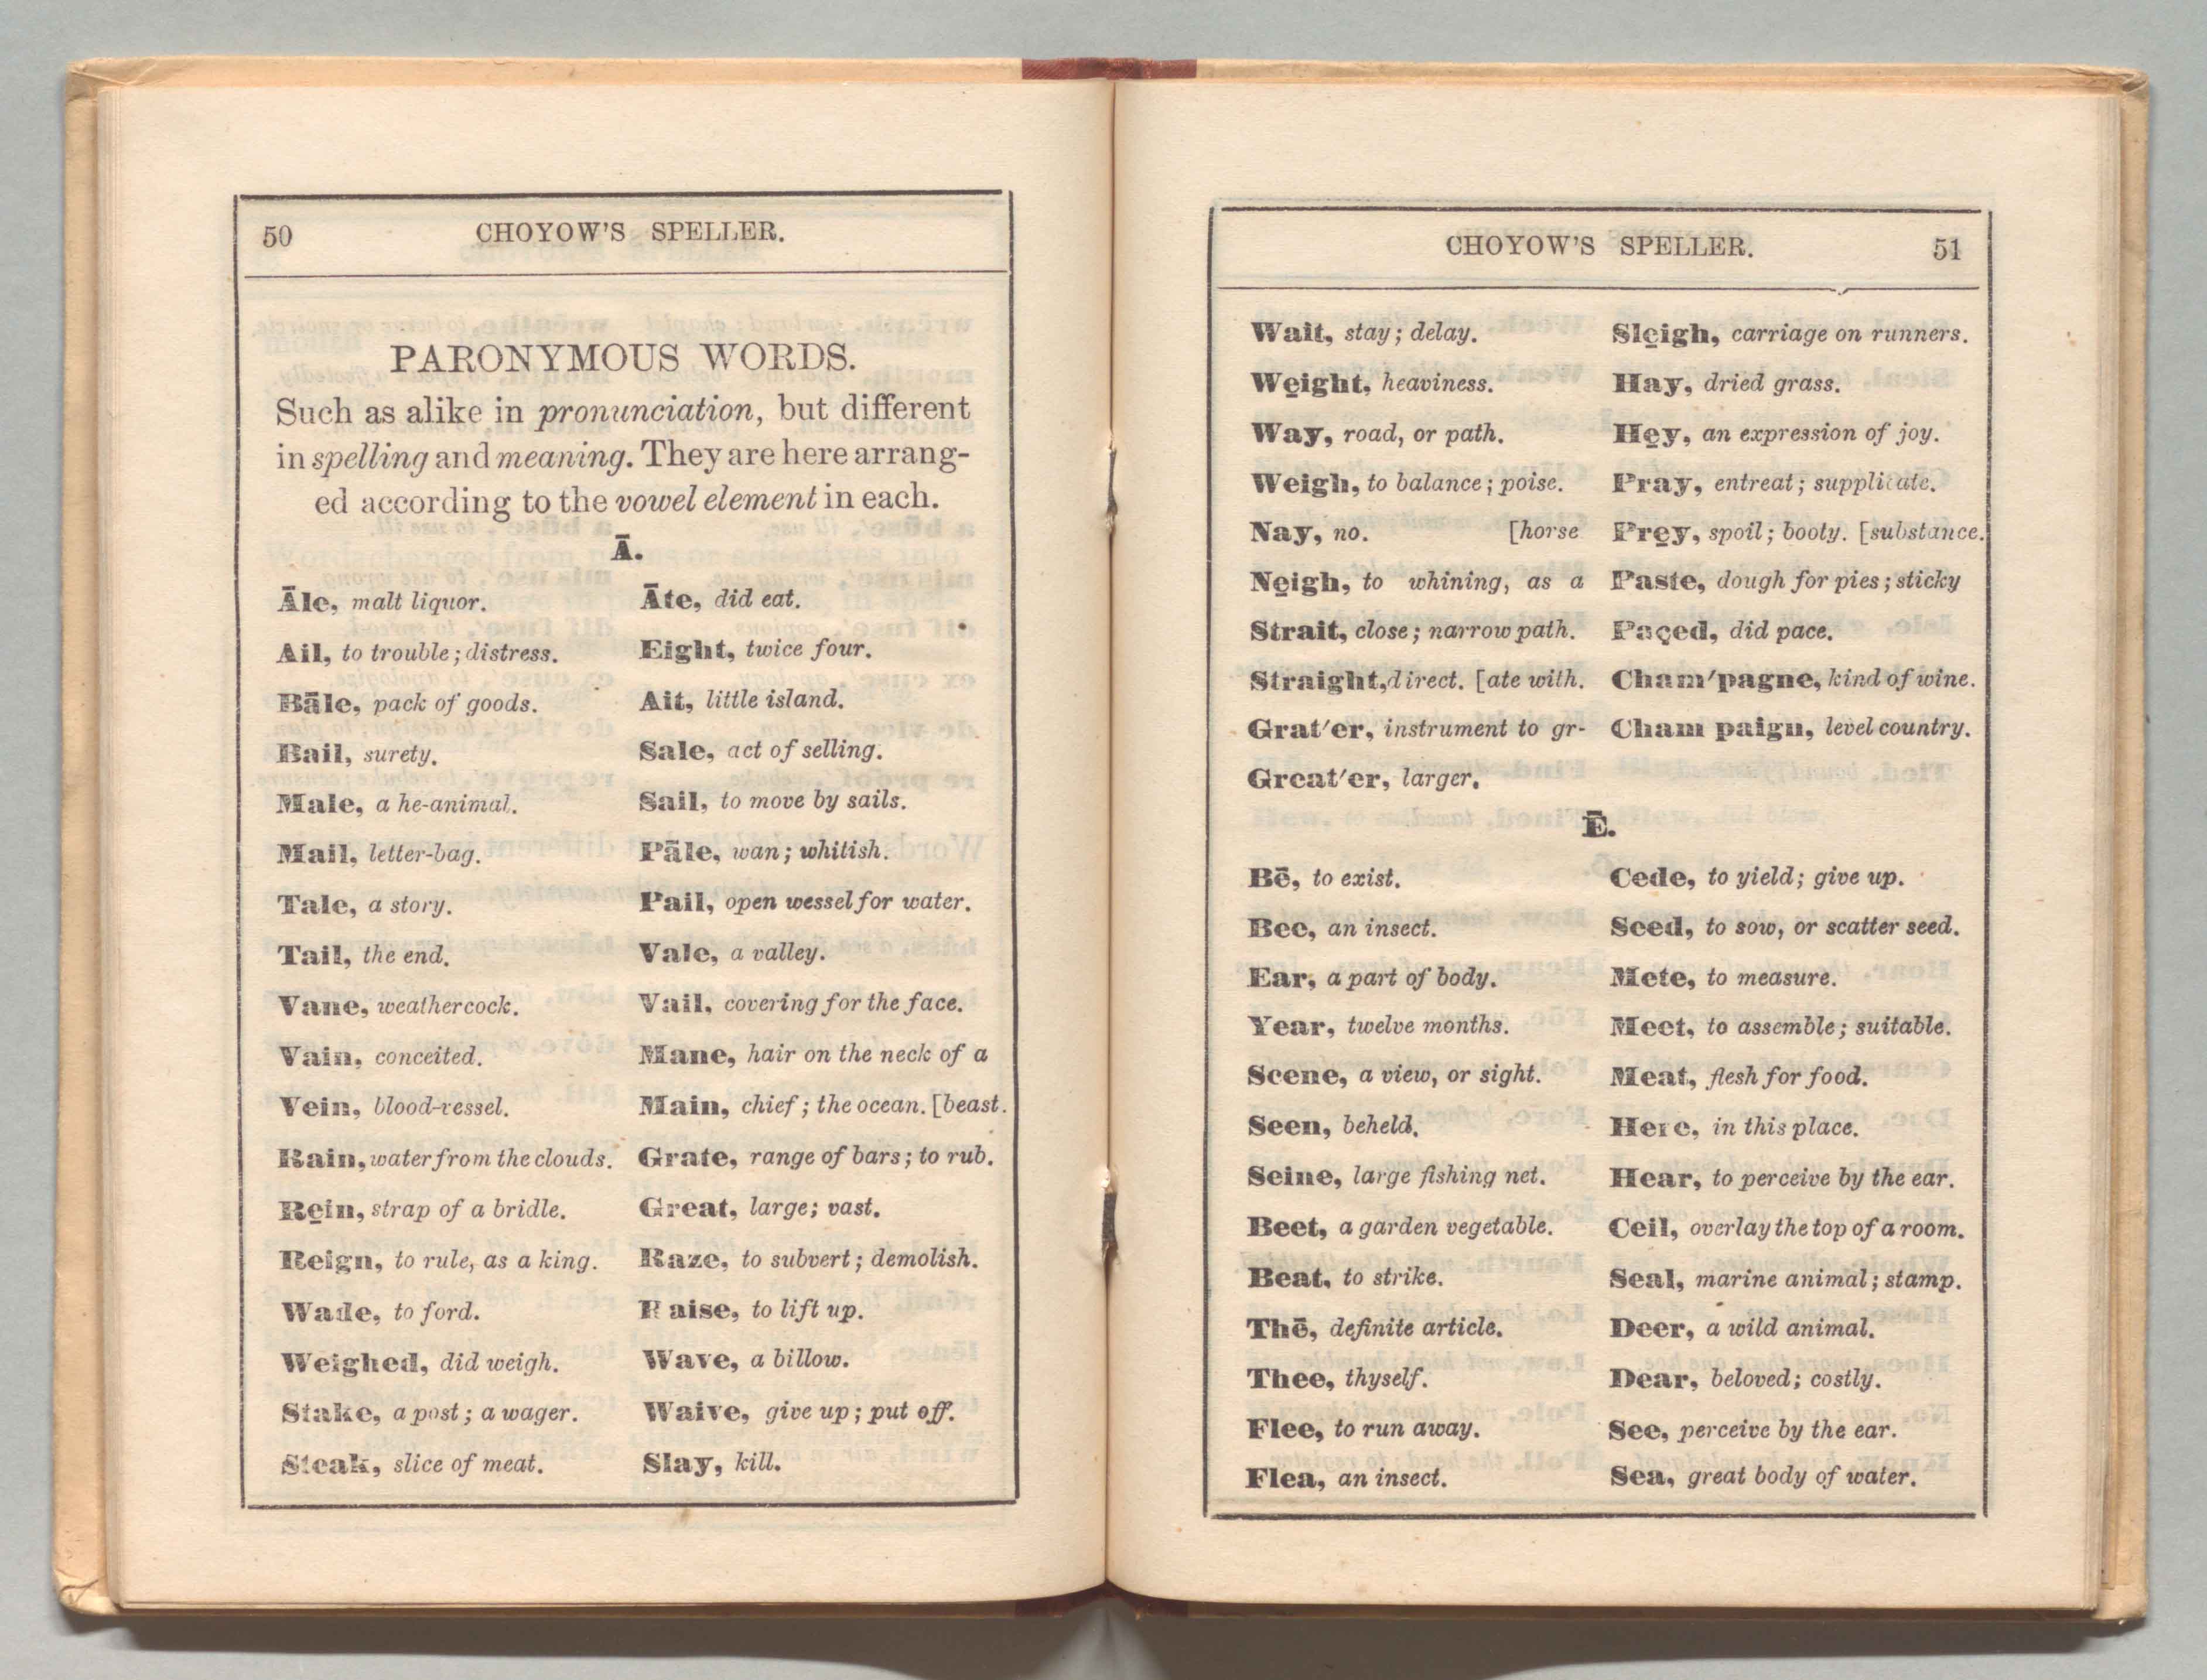 50 CHOYOW'S SPELLER.
PARONYMOUS WORDS.
Such as alike in pronunciation, but different
in spelling and meaning. They are here arrang-
ed according to the vowel element in each.
Ā.
Āle, malt liquor.
Ail, to trouble; distress.
Bāle, pack of goods.
Bail, surety.
Male, a he-animal.
Mail, letter-bag.
Tale, a story.
Tail, the end.
Vane, weathercock.
Vain, conceited.
Vein, blood-vessel.
Rain, water from the clouds.
Re̱in, strap of a bridle.
Reign, to rule, as a king.
Wade, to ford.
Weighed, did weigh.
Stake, a post; a wager.
Steak, slice of meat.
Āte, did eat.
Eight, twice four.
Ait, little island.
Sale, act of selling.
Sail, to move by sails.
Pāle, wan; whitish.
Pail, open wessel for water.
Vale, a valley.
Vail, covering for the face.
Mane, hair on the neck of a
Main, chief; the ocean. [beast.
Grate, range of bars; to rub.
Great, large; vast.
Raze, to subvert; demolish.
Raise, to lift up.
Wave, a billow.
Waive, give up; put off.
Slay, kill.
CHOYOW'S SPELLER. 51
Wait, stay; delay.
We̱ight, heaviness.
Way, road, or path.
Weigh, to balance; poise.
Nay, no. [horse
Ne̱igh, to whining, as a
Strait, close; narrow path.
Straight, direct. [ate with.
Grat'er, instrument to gr-
Great'er, larger.
Sle̱igh, carriage on runners.
Hay, dried grass.
He̱y, an expression of joy.
Pray, entreat; supplicate.
Pre̱y, spoil; booty. [substance.
Paste, dough for pies; sticky
Paçed, did pace.
Cham'pagne, kind of wine.
Cham paign, level country.
Ē.
Bē, to exist.
Bee, an insect.
Ear, a part of body.
Year, twelve months.
Scene, a view, or sight.
Seen, beheld.
Seine, large fishing net.
Beet, a garden vegetable.
Beat, to strike.
Thē, definite article.
Thee, thyself.
Flee, to run away.
Flea, an insect.
Cede, to yield; give up.
Seed, to sow, or scatter seed.
Mete, to measure.
Meet, to assemble; suitable.
Meat, flesh for food.
Here, in this place.
Hear, to perceive by the ear.
Ceil, overlay the top of a room.
Seal, marine animal; stamp.
Deer, a wild animal.
Dear, beloved; costly.
See, perceive by the ear.
Sea, great body of water.